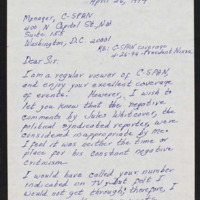 April 26, 1994
Manager, C-SPAN
400 N. Capitol St., NW
Suite 155
Washington, D.C. 20001
RE: C-SPAN coverage
4-26-94 President Nixon
Dear Sir:
I am a regular viewer of C-SPAN,
and enjoy your excellent coverage
of events. However, I wish to
let you know that the negative
comments by Jules Witcover, the
political syndicated reporter, were
considered inappropriate by me.
I feel it was neither the time or
place for his constant negative
criticism.
I would have called your number
indicated on TV but felt I
would not get through; therefore, I